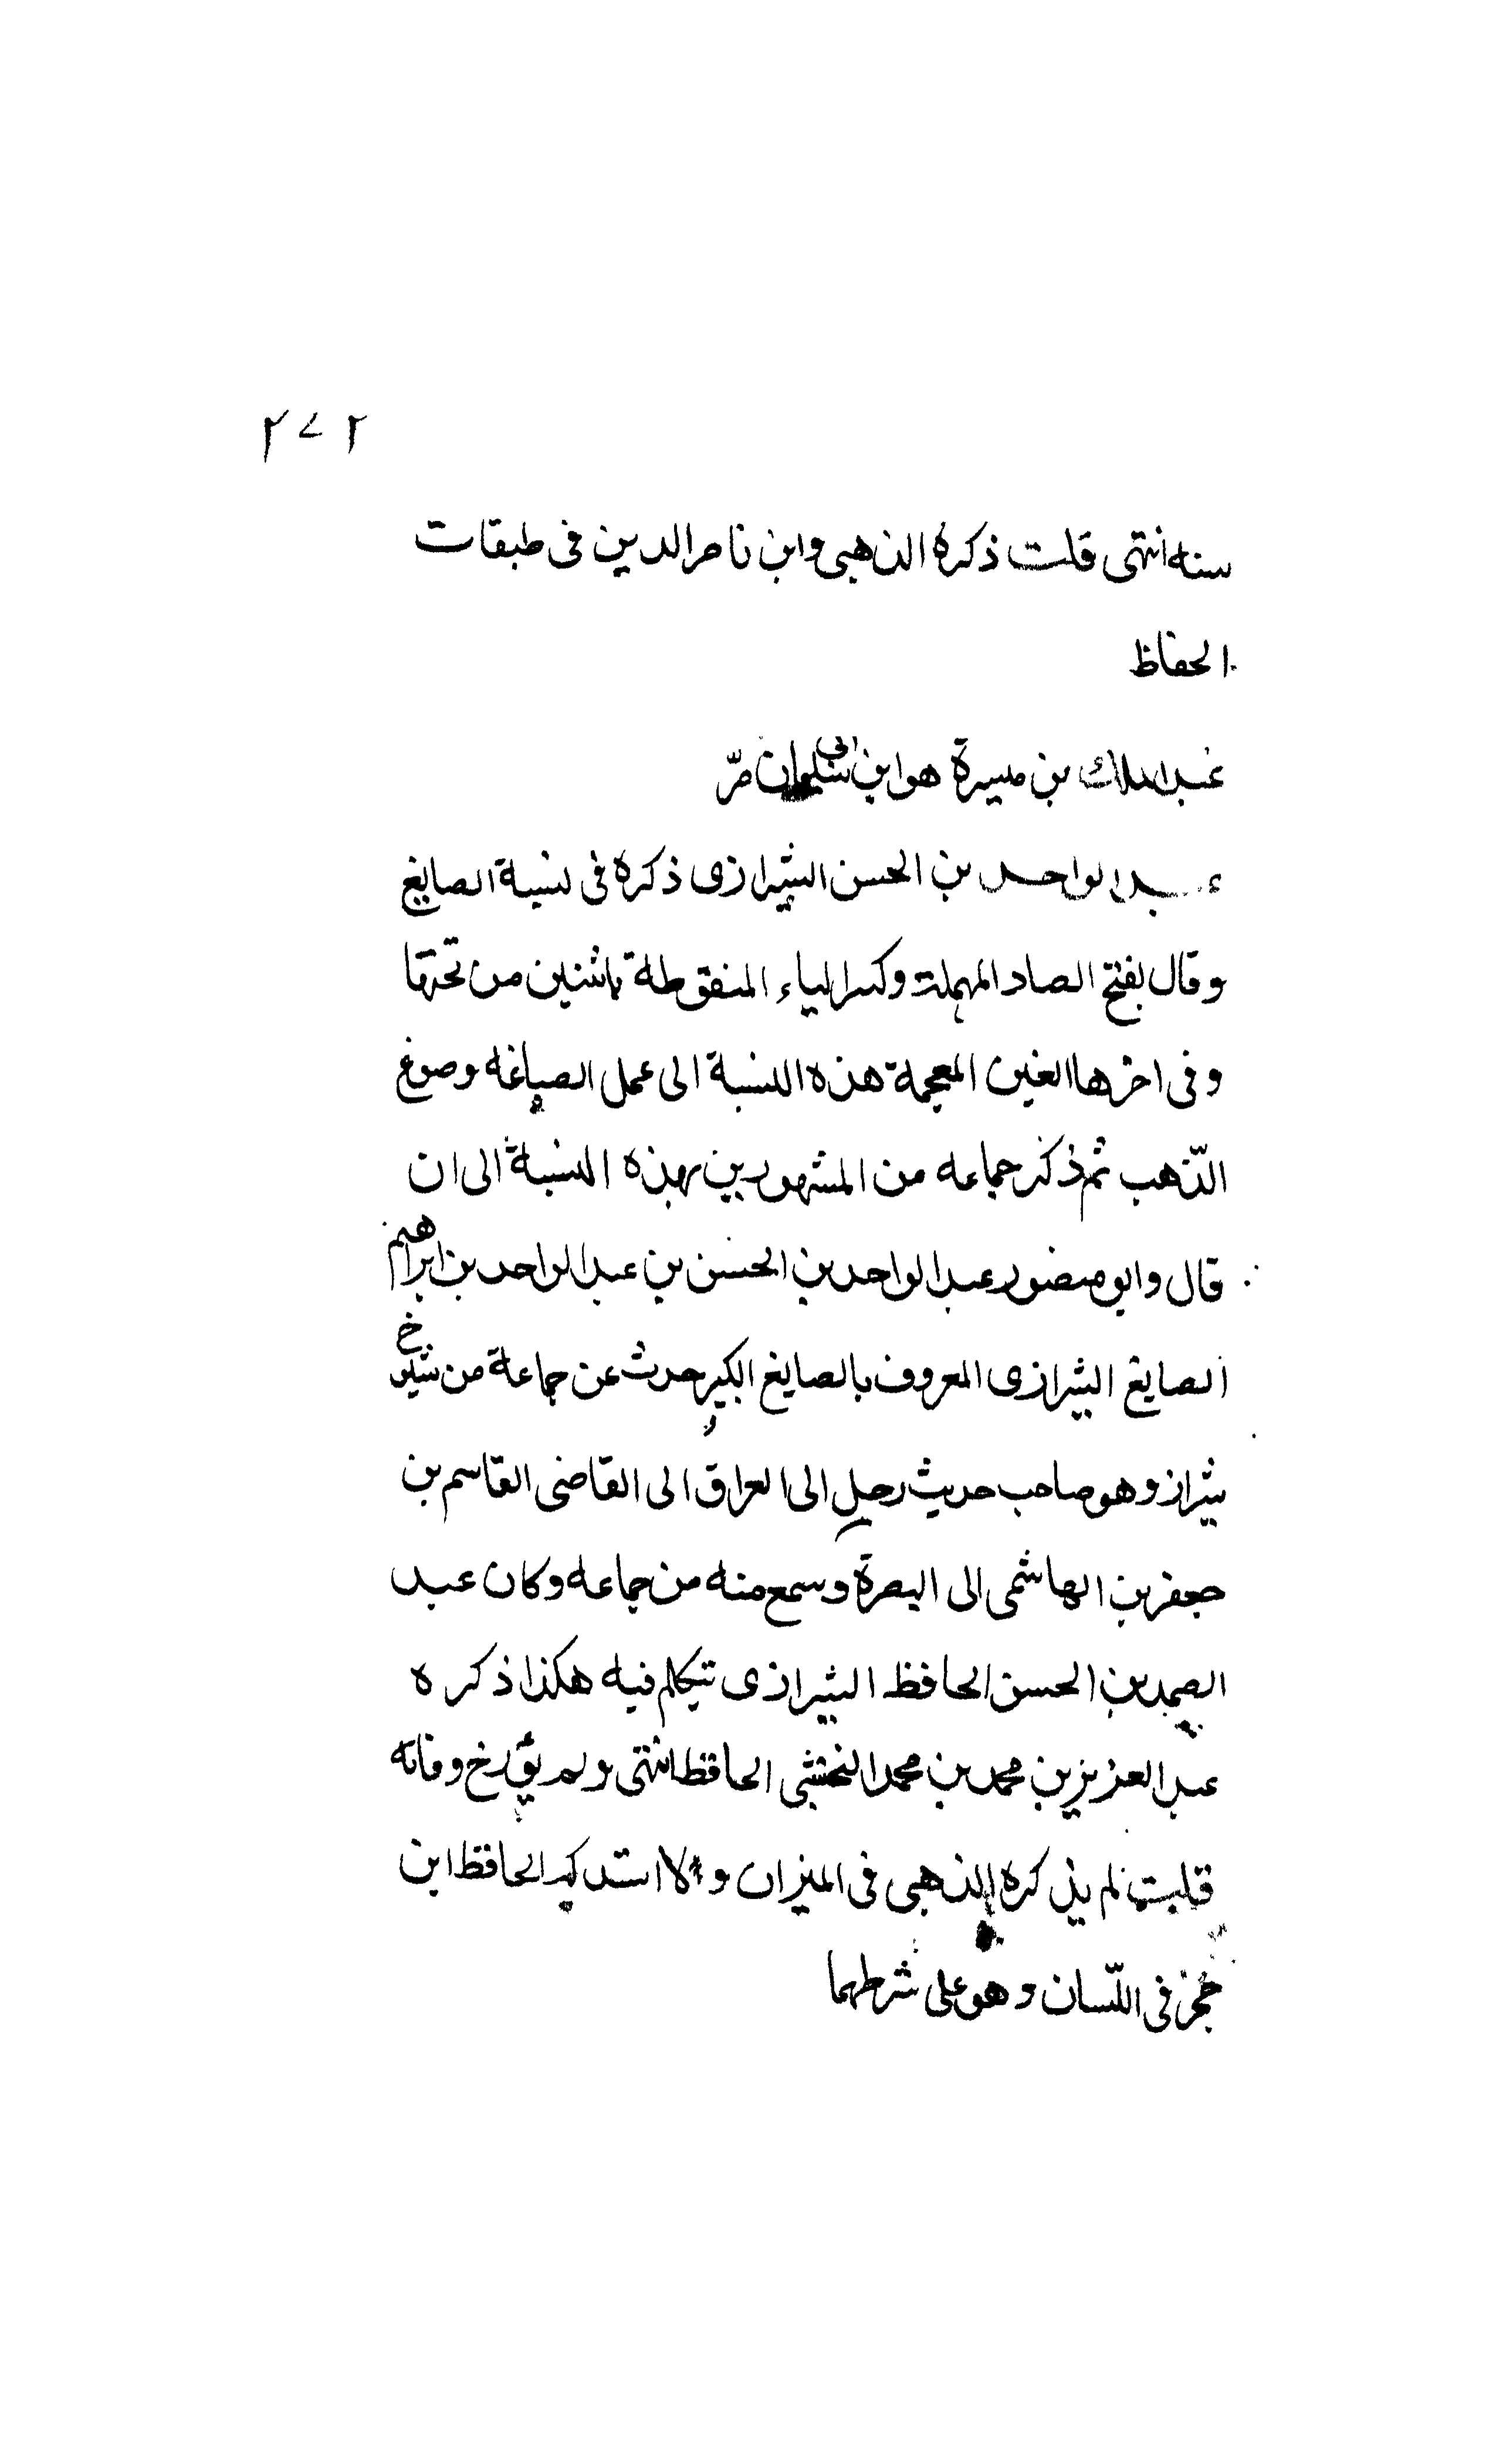 ٢٧٢
سنه انتهى قلت ذكره الذهبى وابن ناصر الدين فى طبقات
الحفاظ
عبد الملك بن ميسرة هو ابن ابى سليمان مرّ
عبد الواحد بن الحسن الشيرازى ذكره فى نسبة الصايغ
وقال بفتح الصاد المهملة وكسر الياء المنقوطة باثنين من تحتها
وفى اخرها الغين المعجمة هذه النسبة الى عمل الصياغه وصوغ
الذّهب ثم ذكر جماعه من المشهورين بهذه النسبة الى ان
قال وابو منصور عبد الواحد بن الحسن بن عبد الواحد بن ابراهيم
الصايغ الشيرازى المعروف بالصايغ الكبير حدث عن جماعة من شيوخ
شيراز وهو صاحب حديث رحل الى العراق الى القاضى القاسم بن
جعفر بن الهاشمى الى البصرة وسمع منه من جماعه وكان عبد
الصمد بن الحسن الحافظ الشيرازى يتكلم فيه هكذا ذكره
عبد العزيز بن محمد بن محمد النخشبى الحافظ انتهى ولم يؤرخ وفاته
قلت لم يذكره الذهبى فى الميزان ولا استدركه الحافظ ابن
حجر فى اللّسان وهو على شرطهما